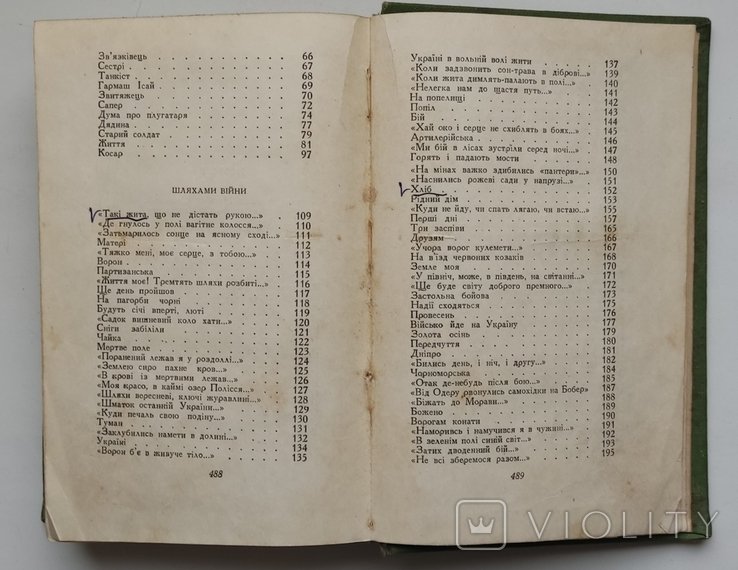 Зв'язківець 66
Сестрі 67
Танкіст 68
Гармаш Ісай 69
Звитяжець 70
Сапер 72
Дума про плугатаря 74
Дядина 77
Старий солдат 79
Життя 81
Косар 97
ШЛЯХАМИ ВІЙНИ
«Такі жита, що не дістать рукою...» 109
«Де гнулось у полі вагітне колосся...» 110
«Затьмарилось сонце на ясному сході...» 111
Матері 112
«Тяжко мені, моє серце, з тобою...» 113
Ворон 114
Партизанська 115
«Життя моє! Тремтять шляхи розбиті...» 116
Ще день пройшов 117
На пагорби чорні 118
Будуть січі вперті, люті 119
«Садок вишневий коло хати...» 120
Сніги забіліли 121
Чайка 122
Мертве поле 123
«Поранений лежав я у роздоллі...» 124
«Землею сиро пахне кров...» 125
«В крові із мертвими лежав...» 126
«Моя красо, в каймі озер Полісся...» 127
«Шляхи вересневі, ключі журавлині...» 128
«Шматок останній України...» 129
«Куди печаль свою подіну...» 130
Туман 131
«Заклубились намети в долині...» 132
Україні 134
«Ворон б'є в живуче тіло...» 135
488
Україні в вольній волі жити 137
«Коли задзвонить сон-трава в діброві...» 139
«Коли жита димлять-палають в полі...» 140
«Нелегка нам до щастя путь...» 141
На попелищі 142
Попіл 143
Бій 144
«Хай око і серце не схиблять в боях...» 145
Артилерійська 146
«Ми бій в лісах зустріли серед ночі...» 147
Горять і падають мости 148
«На мінах важко здибились «пантери»...» 150
«Наснились рожеві сади у напрузі...» 151
Хліб 152
Рідний дім 153
«Куди не йду, чи спать лягаю, чи встаю...» 155
Перші дні 157
Три заспіви 165
Друзям 166
«Учора ворог кулемети...» 167
На в'їзд червоних козаків 168
Земле моя 170
«У північ, може, в південь, на світанні...» 171
«Ще буде світу доброго премного...» 172
Застольна бойова 173
Надії сходяться 175
Провесень 176
Військо йде на Україну 177
Золота осінь 179
Передчуття 180
Дніпро 181
«Бились день, і ніч, і другу...» 182
Чорноморська 184
«Отак де-небудь після бою...» 185
«Від Одеру рвонулись самохідки на Бобер» 187
«Біжать до Морави...» 188
Божено 189
Ворогам конати 190
«Наморивсь і намучився я в чужині...» 191
«В зеленім полі синій світ...» 192
«Затих дводенний бій...» 193
«Не всі зберемося разом...» 195
489
VIOLITY